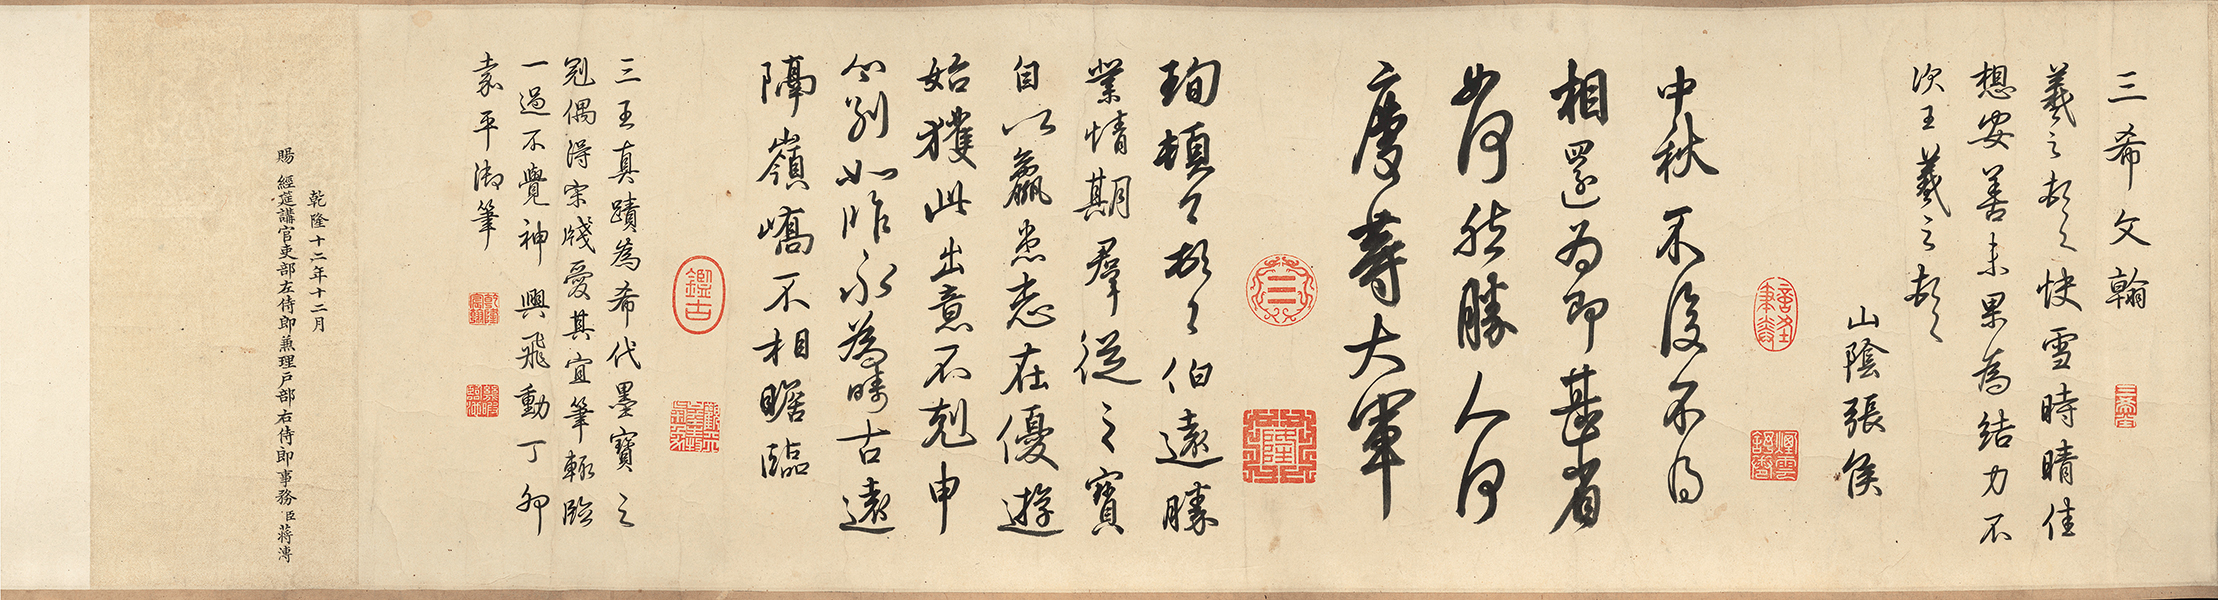 三希文翰
羲之頓首快雪時晴佳
想安善未果為結力不
次王羲之頓首
山陰張侯
中秋不復不得
相還為即甚省
如何然勝人何
慶等大軍
珣頓首頓首伯遠勝
業情期羣從之寶
自以羸患志在優遊
始獲此出意不剋申
分別如昨永為疇古遠
隔嶺嶠不相瞻臨
三王真蹟為希代墨寶之
冠偶得宋牋愛其宜筆輒臨
一過不覺神興飛動丁卯
嘉平御筆
乾隆十二年十二月
賜經筵講官吏部左侍郎兼理戶部右侍郎事務臣蔣溥